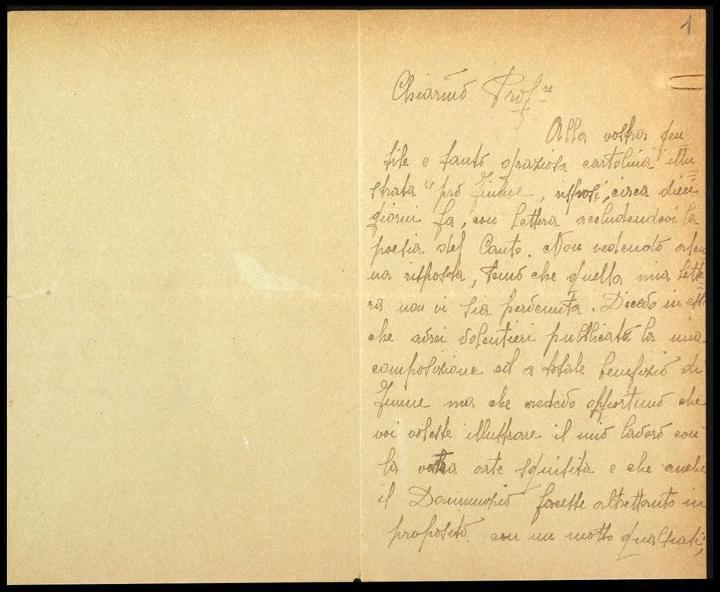 1
Chiarmo Prof.re
Alla vostra gen
tile e tanto graziosa cartolina illu
strata "pro Fiume", risposi, circa dieci
giorni fa, con lettera accludendovi la
poesia del Canto. Non vedendo alcu
na risposta, temo che quella mia lette
ra non vi sia pervenuta. Dicevo in essa
che avrei volentieri pubblicato la mia
composizione ed a totale benefizio di
Fiume ma che credevo opportuno che
voi voleste illustrare il mio lavoro con
la vostra arte squisita e che anche
il Dannunzio facesse altrettanto in
proposito con un motto qualsiasi,